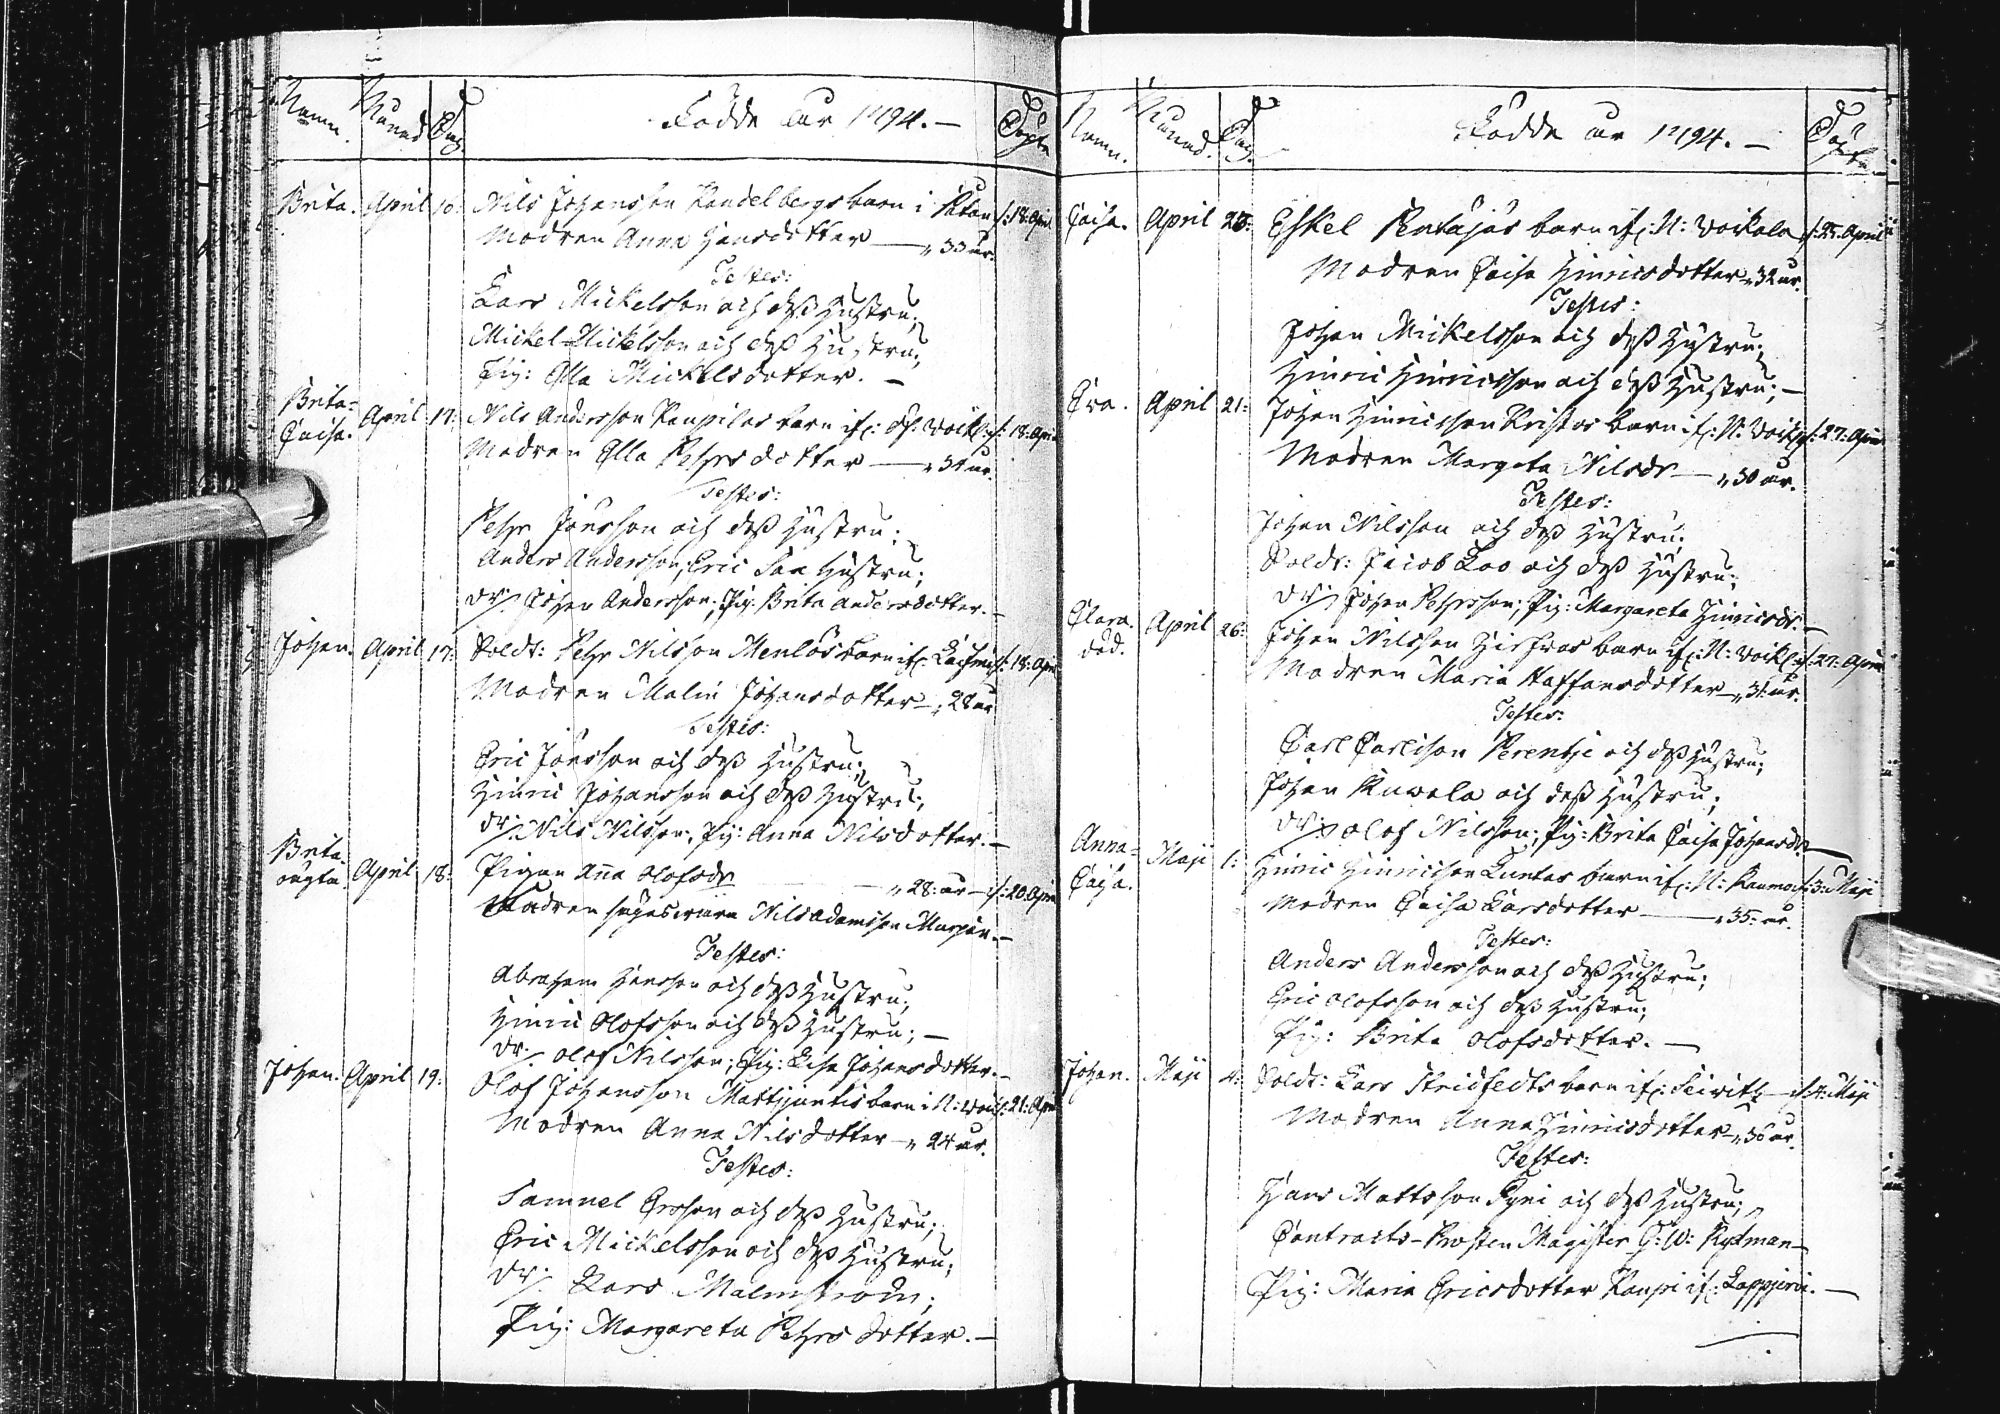 Namn. Månad Dag. Födde åar 1794. — Döpte
Brita. April 10: Nils Johansson Kandelbergs barn i d: 18: Apri
Modren Anna Hansdotter — „33 år.
Testes:
Lars Mickelsson och deß Hustru;
Mickel Mickelsson och deß Hustru;
Pig: Ella Mickelsdotter. —
Brita= Caisa. April 17: Nils Andersson Kaupilas barn if: d: 18: Apri
Modren Ella Pehrsdotter — „34 år.
Testes:
Pehr Jönsson och deß Hustru;
Anders Andersson; Eric Hustru;
Dr: Johan Andersson; Pig: Brita Andersdotter. —
Johan. April 17: Soldt: Pehr Nilsson Menlös barn if: d: 18: Apri
Modren Malin Johansdotter — „28 år
Testes:
Eric Jönsson och deß Hustru;
Hinric Johansson och deß Hustru;
Dr: Nils Nilsson; Pig: Anna Nilsdotter. —
Brita oägta. April 18: Pigan Anna Olofsdr — „28: år — d: 20 Apri
Fadren säges vara Nils Adamsson —
Testes:
Abraham Hansson och deß Hustru;
Hinric Olofsson och deß Hustru; —
Dr: Olof Nilsson; Pig: Lisa Johansdotter. —
Johan. April 19: Olof Johansson barn i N: d: 21: Apri
Modren Anna Nilsdotter — „24 år.
Testes:
Samuel Ersson och deß Hustru;
Eric Mickelsson och deß Hustru;
Dr: Lars Malmström;
Pig: Margareta Pehrsdotter. —
Namn. Månad. Dag. Födde år 1794. — Döpte
Caisa. April 20: Eskel Pentäjäs barn if: N: Woikala d: 25: April
Modren Caisa Hinricsdotter „32 år.
Testes:
Johan Mickelsson och deß Hustru;
Hinric Hinricsson och deß Hustru; —
Eva. April 21: Johan Hinricsson Kristos barn if: N: d: 27: April
Modren Margeta Nilsdr — „30 år.
Testes:
Johan Nilsson och deß Hustru;
Soldt: Jacob Loo och deß Hustru;
Dr: Johan Pehrsson; Pig: Margareta Hinricsdr. —
Clara död. April 26: Johan Nilsson barn if: N: d: 27: April
Modren Maria Staffansdotter — „31: år.
Testes:
Carl Carlsson Perentje och deß Hustru;
Johan Kuwala och deß Hustru;
Dr: Olof Nilsson; Pig: Brita Caisa Johansdr. —
Anna= Cajsa. Maji 1: Hinric Hinricsson Luntas barn if: N: Raumo d: 3: Maji
Modren Caisa Larsdotter — „35: år.
Testes:
Anders Andersson och deß Hustru;
Eric Olofsson och deß Hustru;
Pig: Brita Olofsdotter. —
Johan. Maji 4: Soldt: Lars Stridfedts barn if: — d: 4: Maji
Modren Anna Hinricsdotter „36 år.
Testes:
Hans Mattsson Pyni och deß Hustru;
Contracts-Prosten Magister G: W: Rydman —
Pig: Maria Ericsdotter Kaupi if: Lappjervi. —